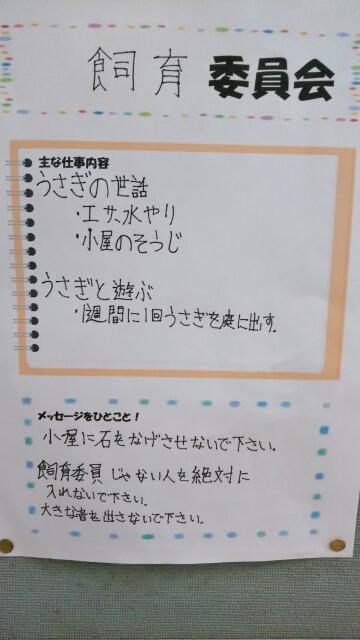 飼育 委員会
主な仕事内容
うさぎの世話
・エサ、水やり
・小屋のそうじ
うさぎと遊ぶ
・1週間に1回うさぎを庭に出す。
メッセージをひとこと！
小屋に石をなげさせないで下さい。
飼育委員じゃない人を絶対に
入れないで下さい。
大きな音を出さないで下さい。